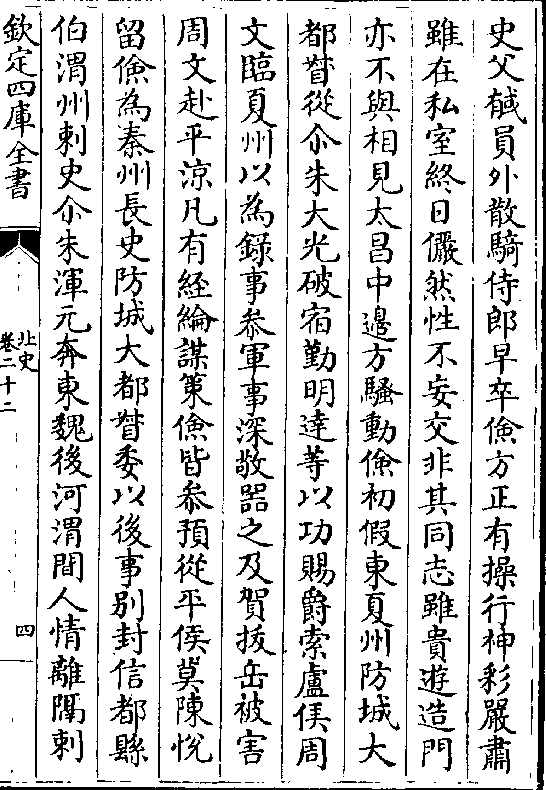 史父𩋾員外散騎侍郎早卒儉方正有操行神彩嚴肅
雖在私室終日儼然性不妄交非其同志雖貴遊造門
亦不與相見太昌中邊方騷動儉初假東夏州防城大
都督從尒朱大光破宿勤明達等以功賜爵索盧侯周
文臨夏州以為錄事叅軍事深敬器之及賀拔岳被害
周文赴平涼凡有經綸謀策儉皆叅預從平侯莫陳悅
留儉為秦州長史防城大都督委以後事別封信都縣
伯渭州刺史尒朱渾元奔東魏後河渭間人情離隔刺
欽定四庫全書
北史
卷二十二
四